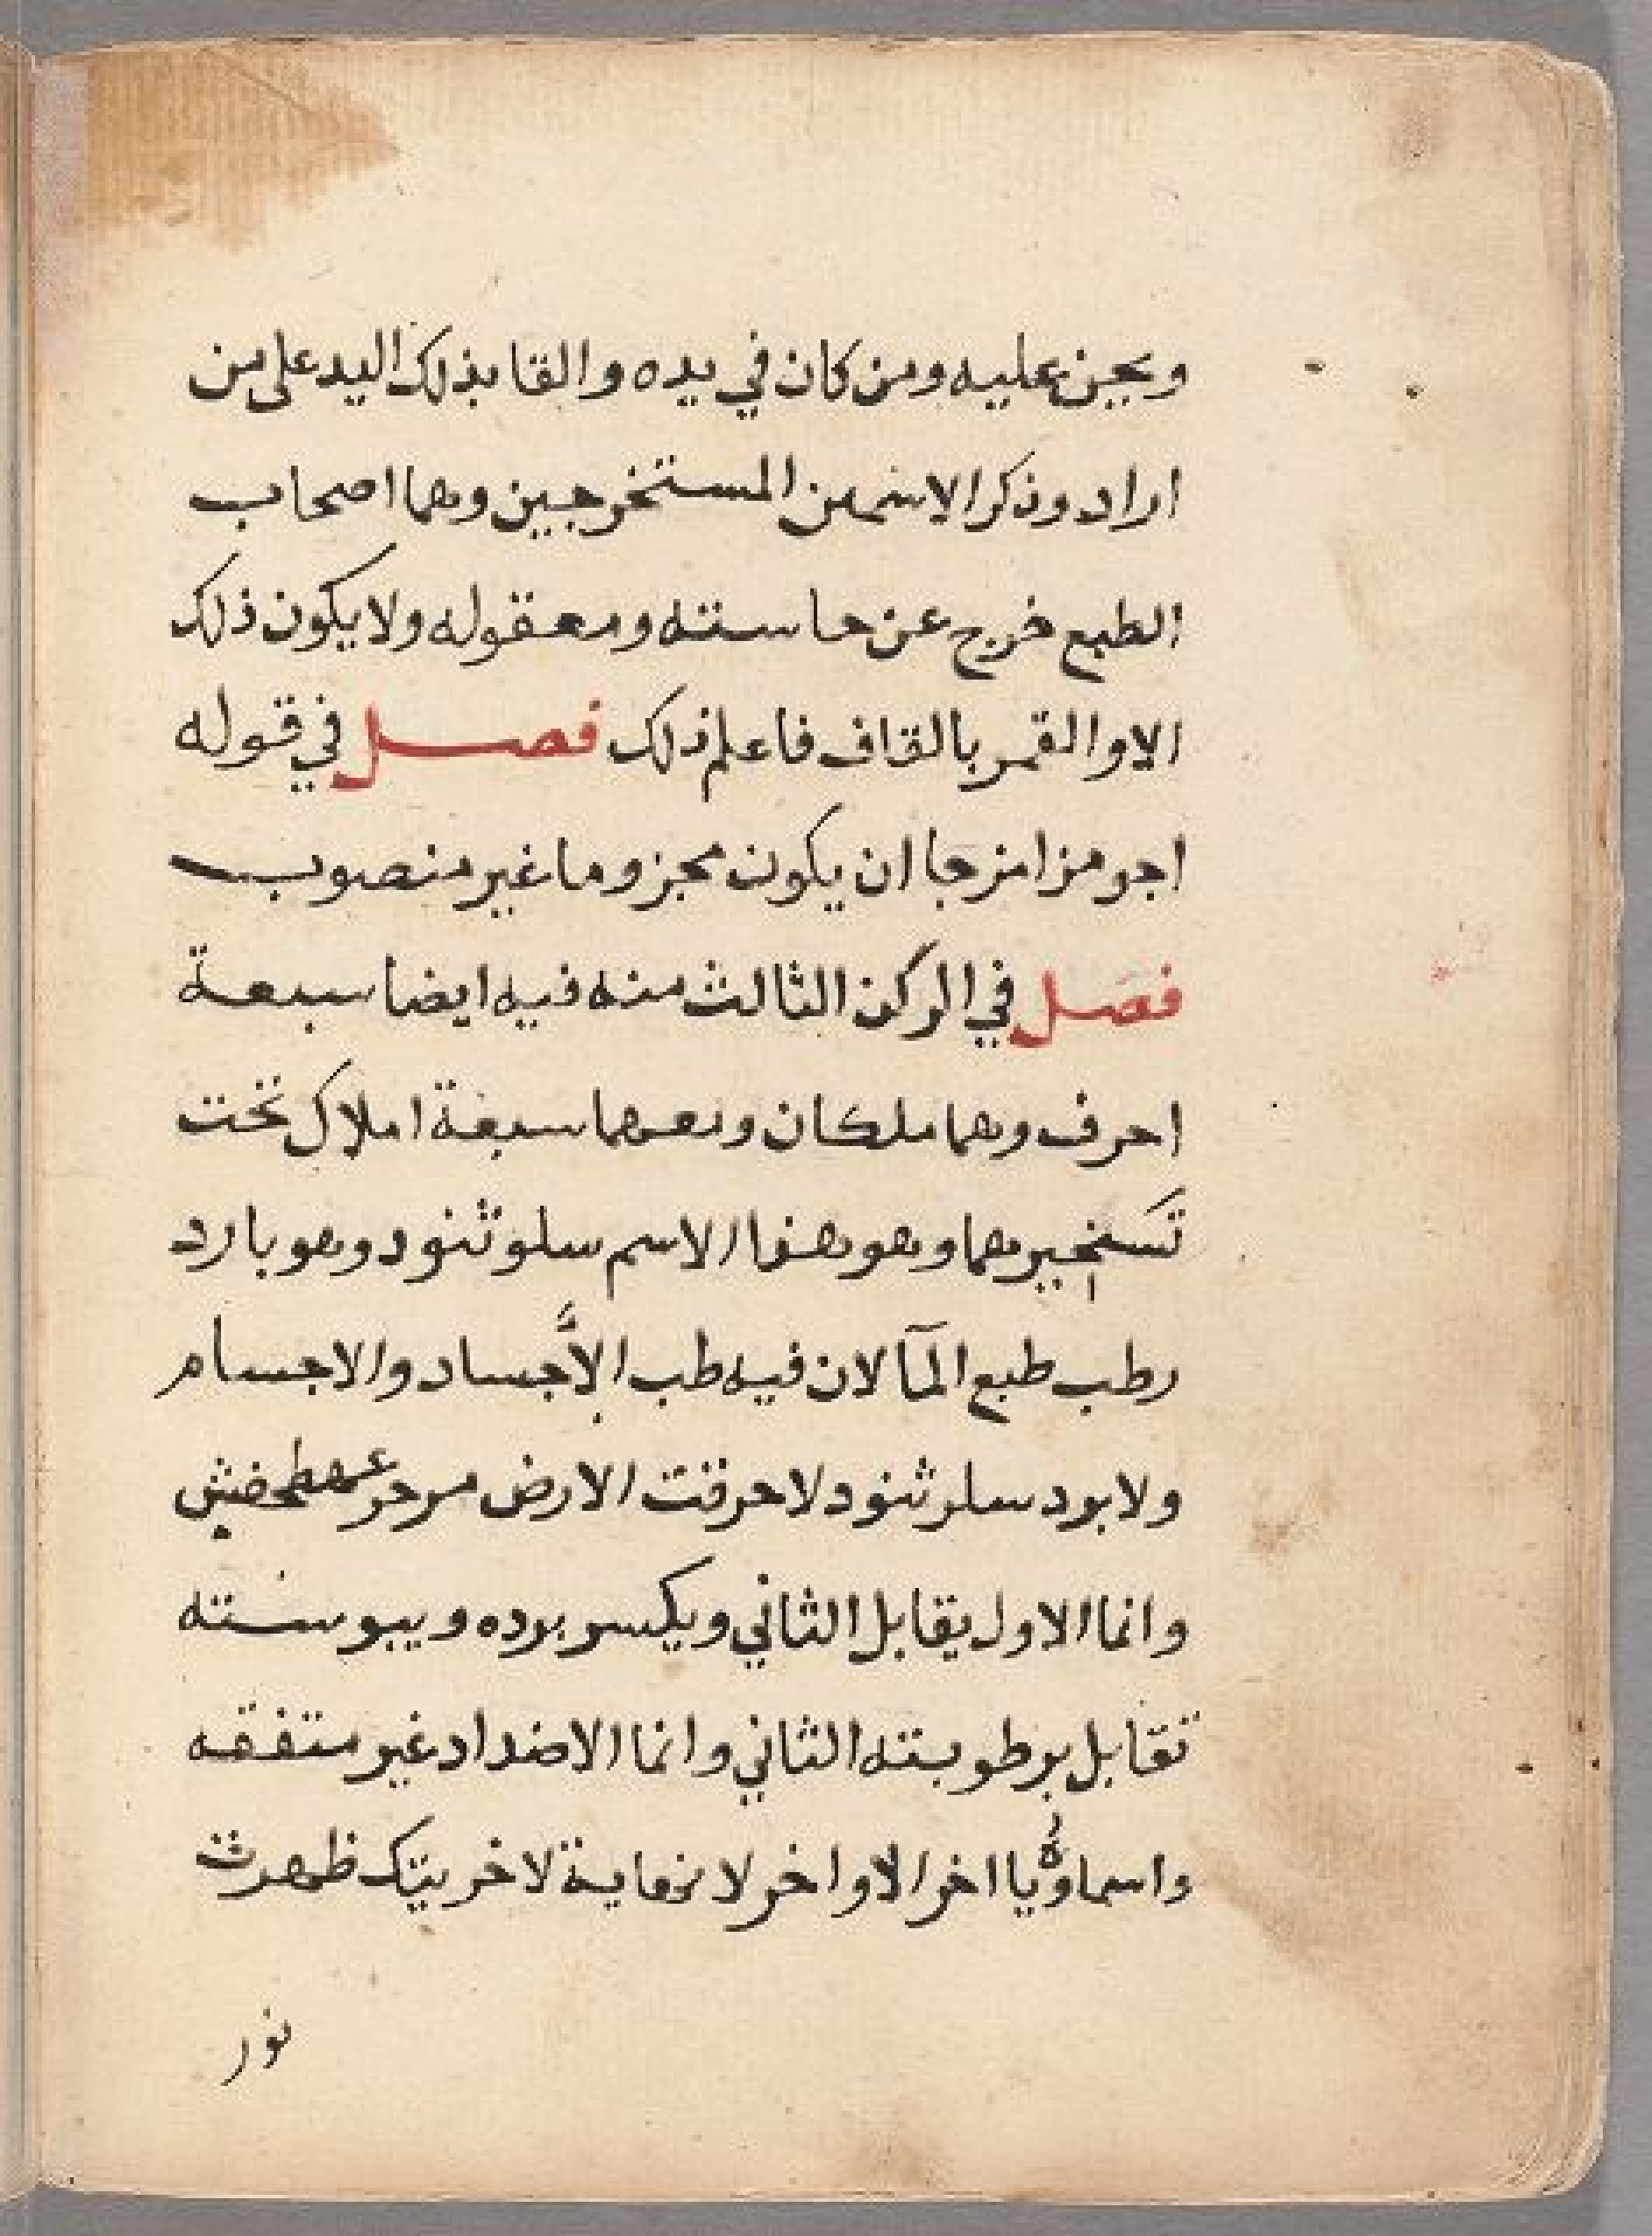 ويجن عليه ومن كان في يده والقا بذلك اليد على من
اراد وذكر الاسمين المستخرجين وهما اصحاب
الطبع خرج عن حاسته ومعقوله ولا يكون ذلك
الا والقمر بالقاف فاعلم ذلك فصل في قوله
اجو مزا مزجا ان يكون مجزوما غير منصوب
فصل في الركن الثالث منه فيه ايضا سبعة
احرف وهما ملكان ومعهما سبعة املاك تحت
تسخيرهما وهو هذا الاسم سلوثنود وهو بارد
رطب طبع المآ لان فيه طب الاجساد والاجسام
ولا برد سلر ثنود لاحرقت الارض من حر
وانما الاول يقابل الثاني ويكسر برده ويبوسته
تقابل برطوبته الثاني وانما الاضداد غير متفقه
واسماوه يا اخر الاواخر لا نهاية لاخريتك ظهرت
نور